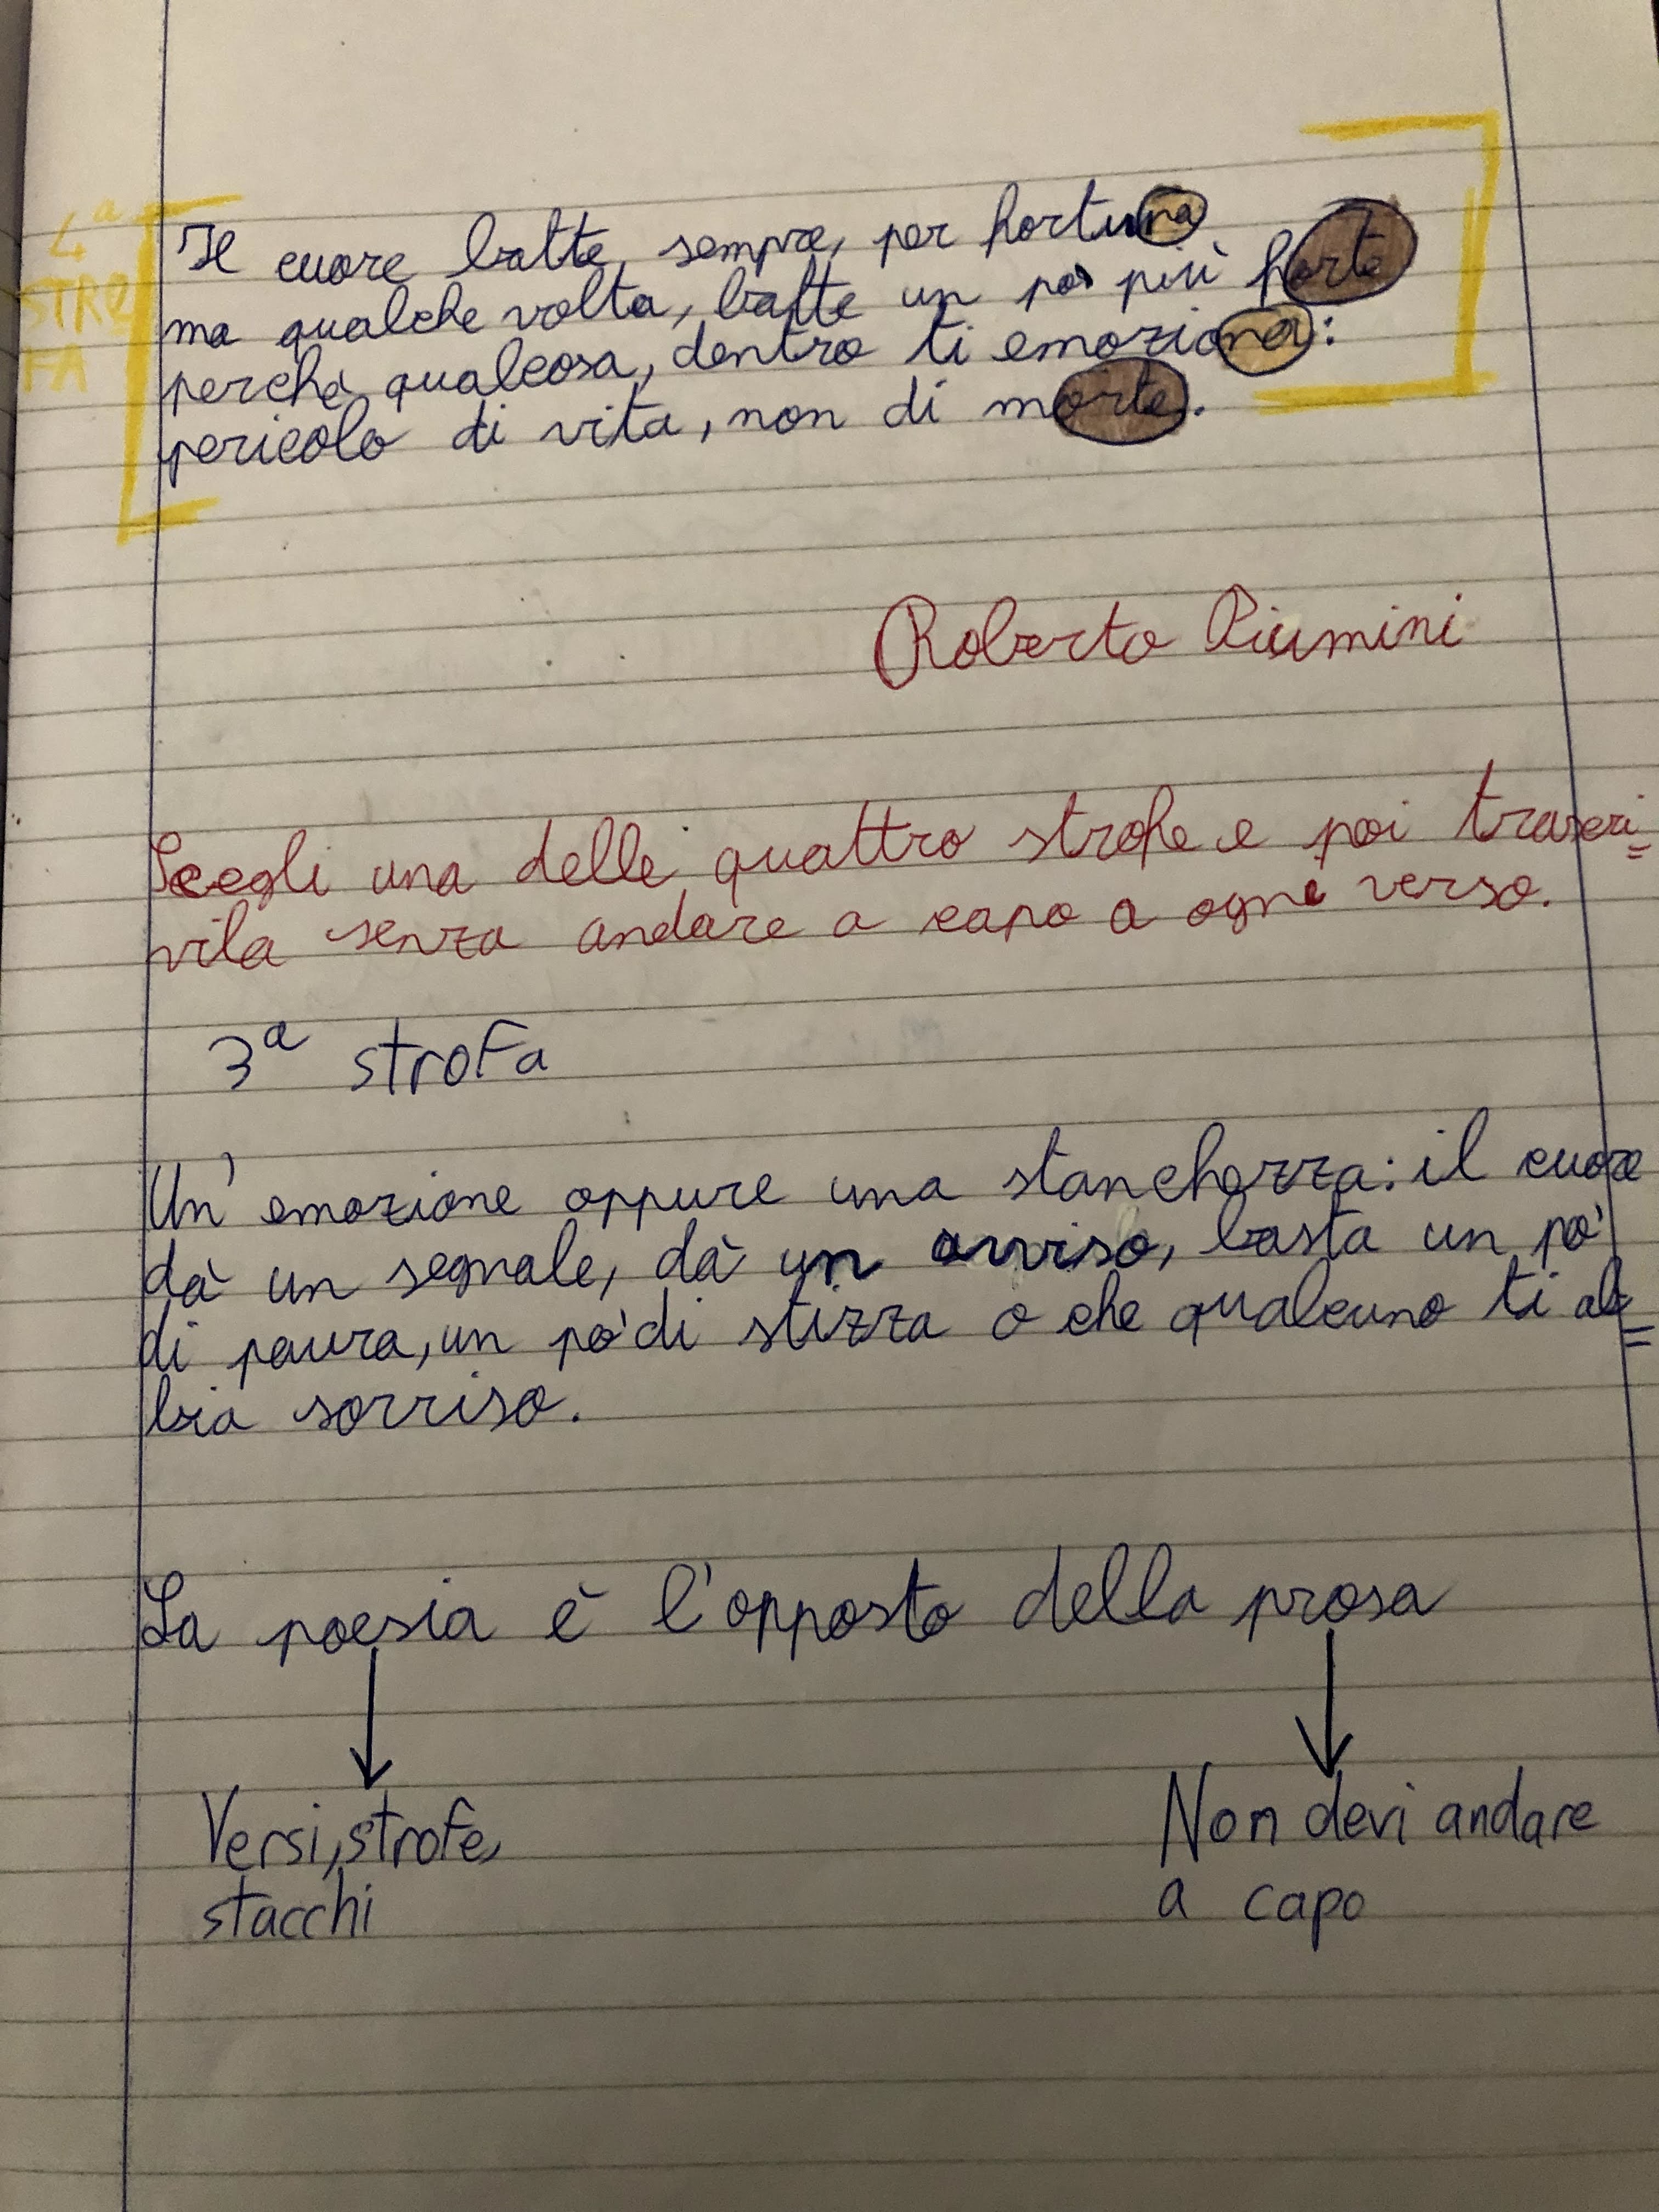 4ª
STRO
FA
Il cuore batte, sempre, per fortuna
ma qualche volta, batte un pò più forte
perchè qualcosa, dentro ti emoziona:
pericolo di vita, non di morte.
Roberto Piumini
Scegli una delle quattro strofe e poi trascri=
vila senza andare a capo a ogni verso.
3ª strofa
Un' emozione oppure una stanchezza: il cuore
dà un segnale, dà un avviso, basta un pò
di paura, un pò di stizza o che qualcuno ti ab=
bia sorriso.
La poesia è l'opposto della prosa
Versi, strofe,
stacchi
Non devi andare
a capo